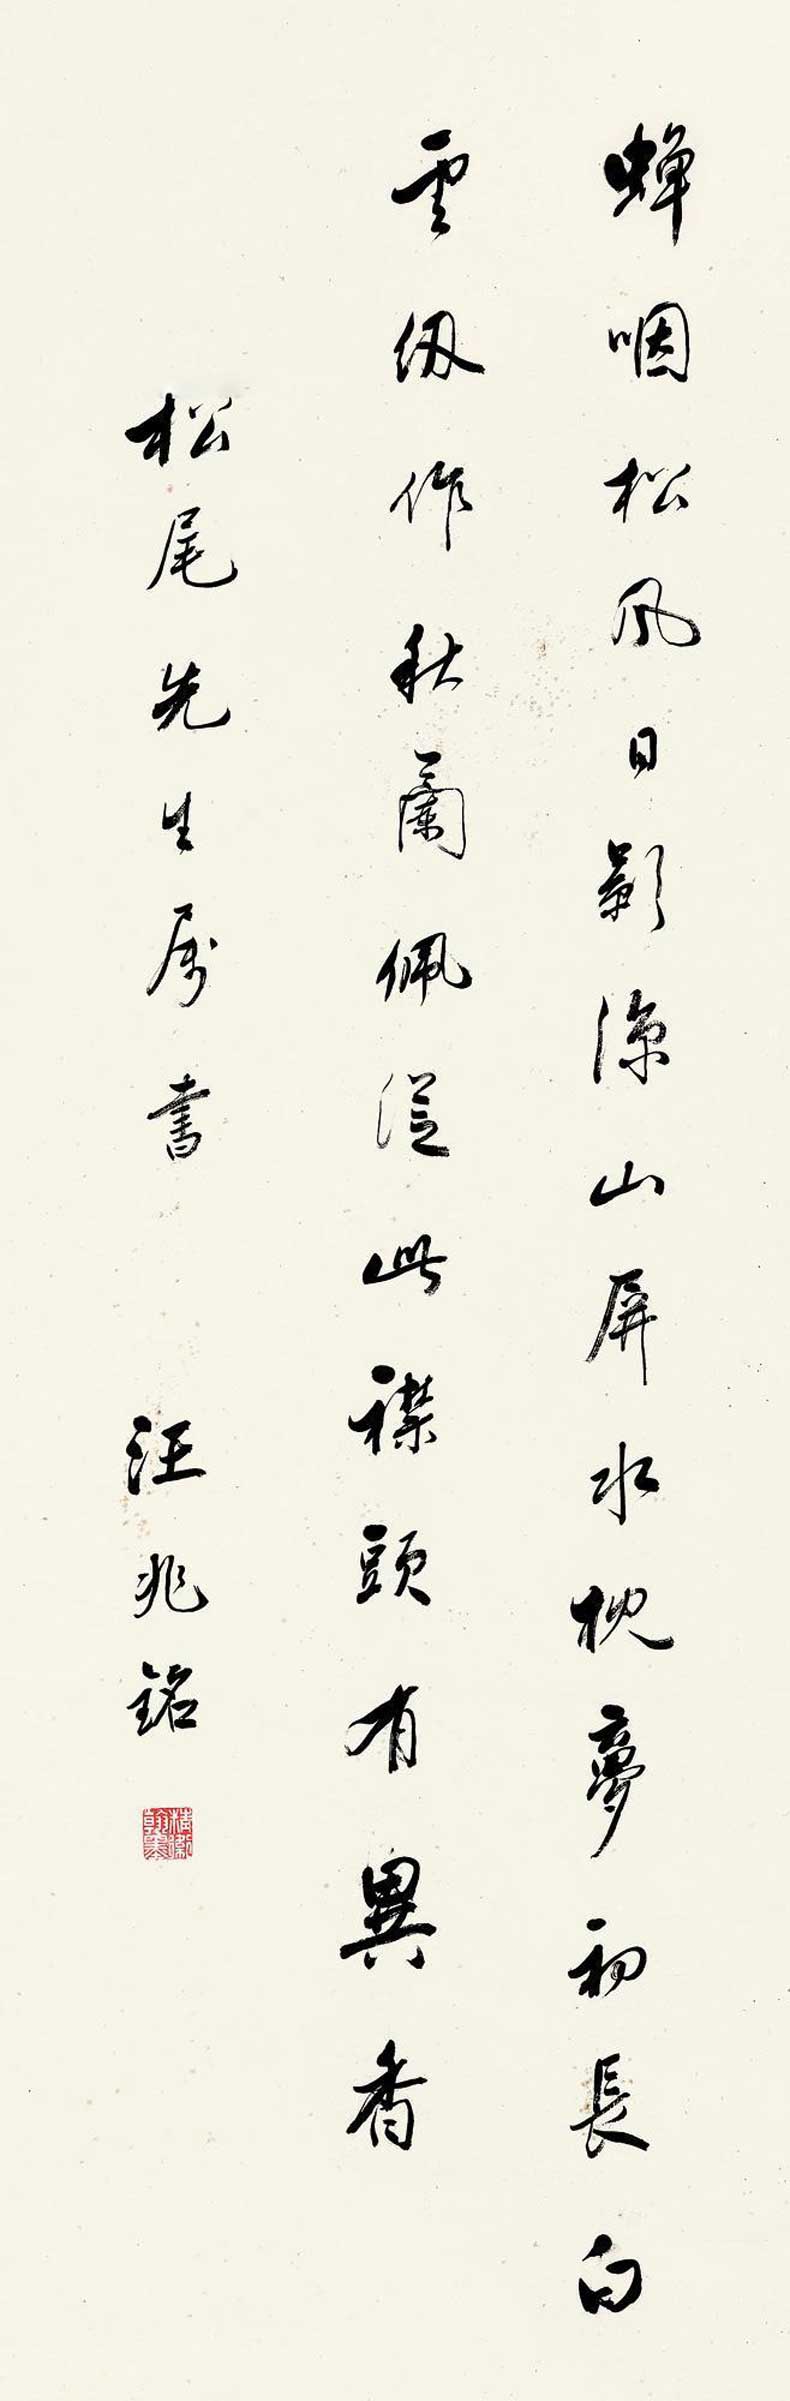 蟬咽松風日影涼山屏水枕夢初長白
雲紉作秋蘭佩從此襟頭有異香
松尾先生属書
汪兆銘
精衛翰墨